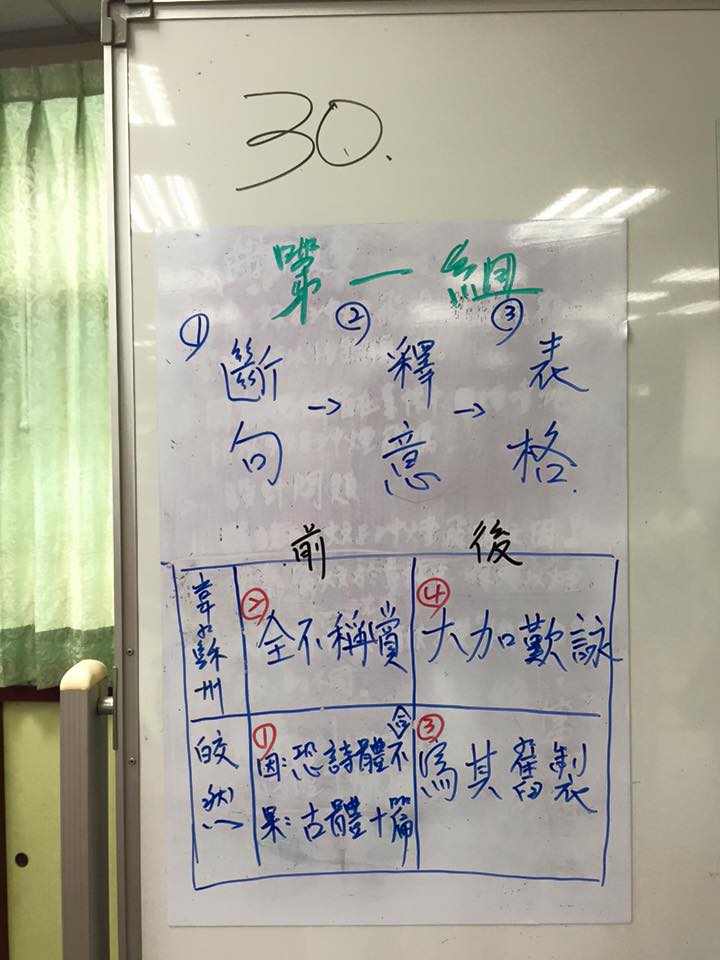 30.
第一組
① 斷句 → ② 釋意 → ③ 表格
前 後
韋蘇州 ② 全不稱賞 ④ 大加歎詠
皎然 ① 因:恐詩體不合 ③ 寫其舊製
果:古體十篇